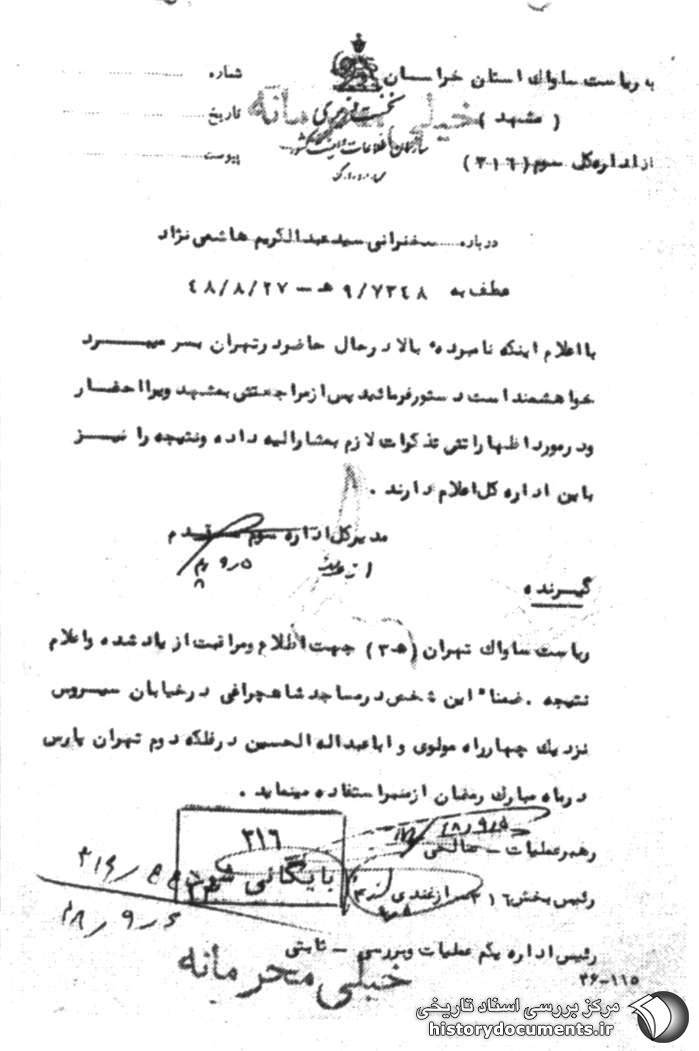 به ریاست ساواك استان خراسان
( مشهد )
از اداره کل سوم (۳۱٦)
خیلی محرمانه
نخست وزیری
سازمان اطلاعات و امنیت کشور
شماره
تاریخ
پیوست
درباره سخنرانی سید عبدالکریم هاشمی نژاد
عطف به ۹/۷۳٤۸ هـ – ٤۸/۸/۲۷
با اعلام اینکه نامبرده بالا در حال حاضر در تهران بسر میبرد
خواهشمند است دستور فرمائید پس از مراجعتش بمشهد ویرا احضار
و در مورد اظهاراتش تذکرات لازم بمشارالیه داده و نتیجه را نیز
باین اداره کل اعلام دارند .
مدیر کل اداره سوم مقدم
گیرنده
ریاست ساواك تهران (هـ۳) جهت اطلاع و مراقبت از یاد شده و اعلام
نتیجه . ضمناً این شخص در مساجد شاهچراغی در خیابان سیروس
نزدیك چهارراه مولوی و اباعبداله الحسین در فلکه دوم تهران پارس
در ماه مبارك رمضان از منبر استفاده مینماید .
رهبر عملیات – صالحی
۳۱٦
بایگانی شود
رئیس بخش ۳۱٦ – ازغندی
۴۸٫۹٫۶
رئیس اداره یکم عملیات و بررسی – ثابتی
خیلی محرمانه
۳۶-۱۱۵
مرکز بررسی اسناد تاریخی
historydocuments.ir